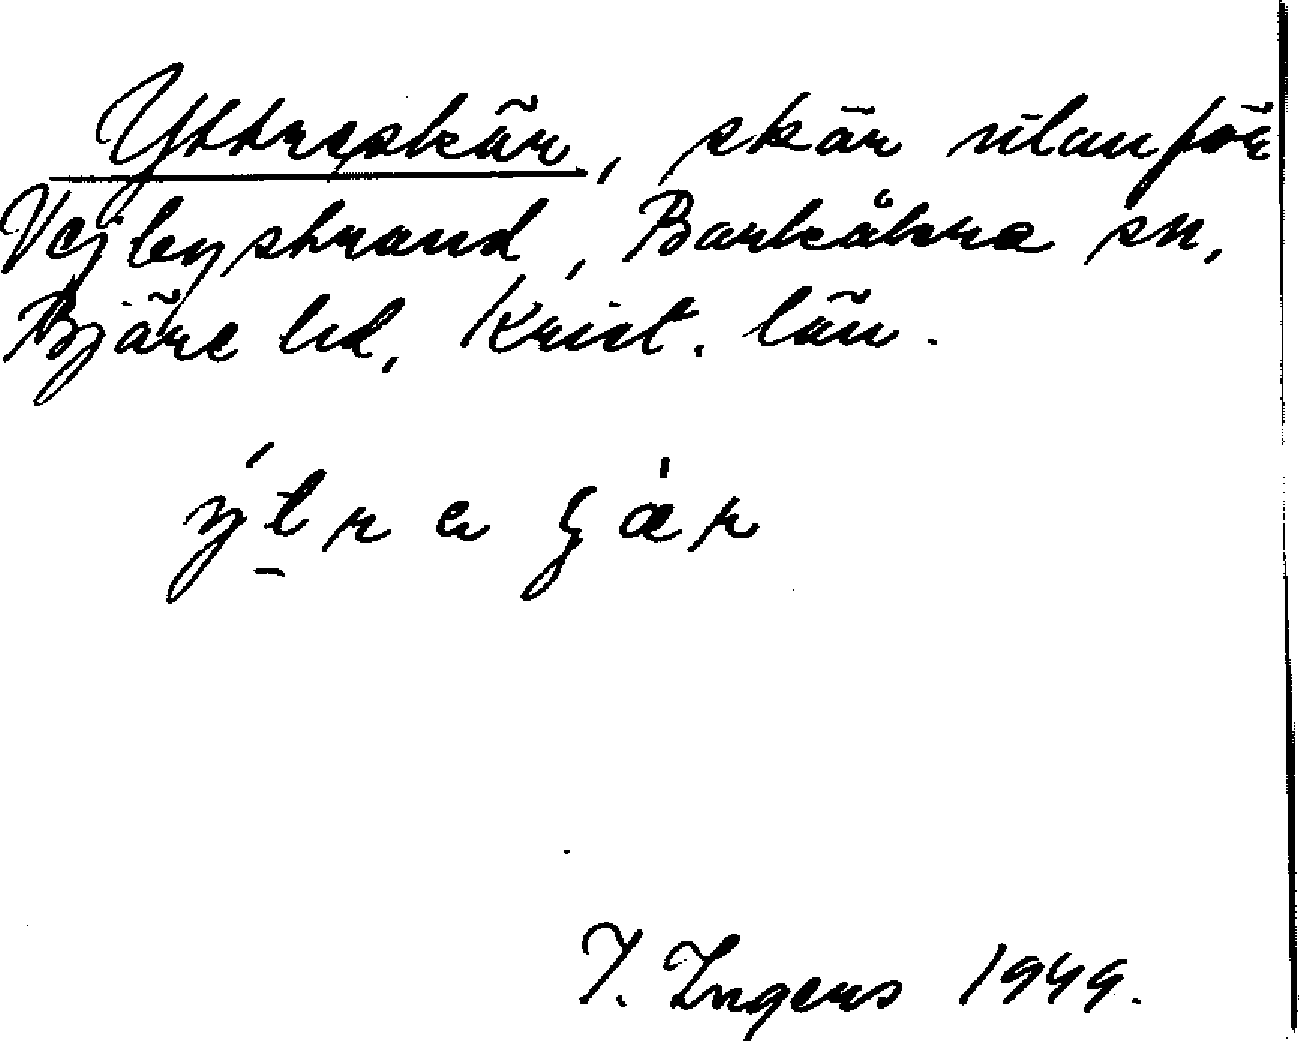 Yttreskär, skär utanför
Vejbystrand, Barkåkra sn,
Bjäre hd, Krist. län.
I. Ingers 1949.